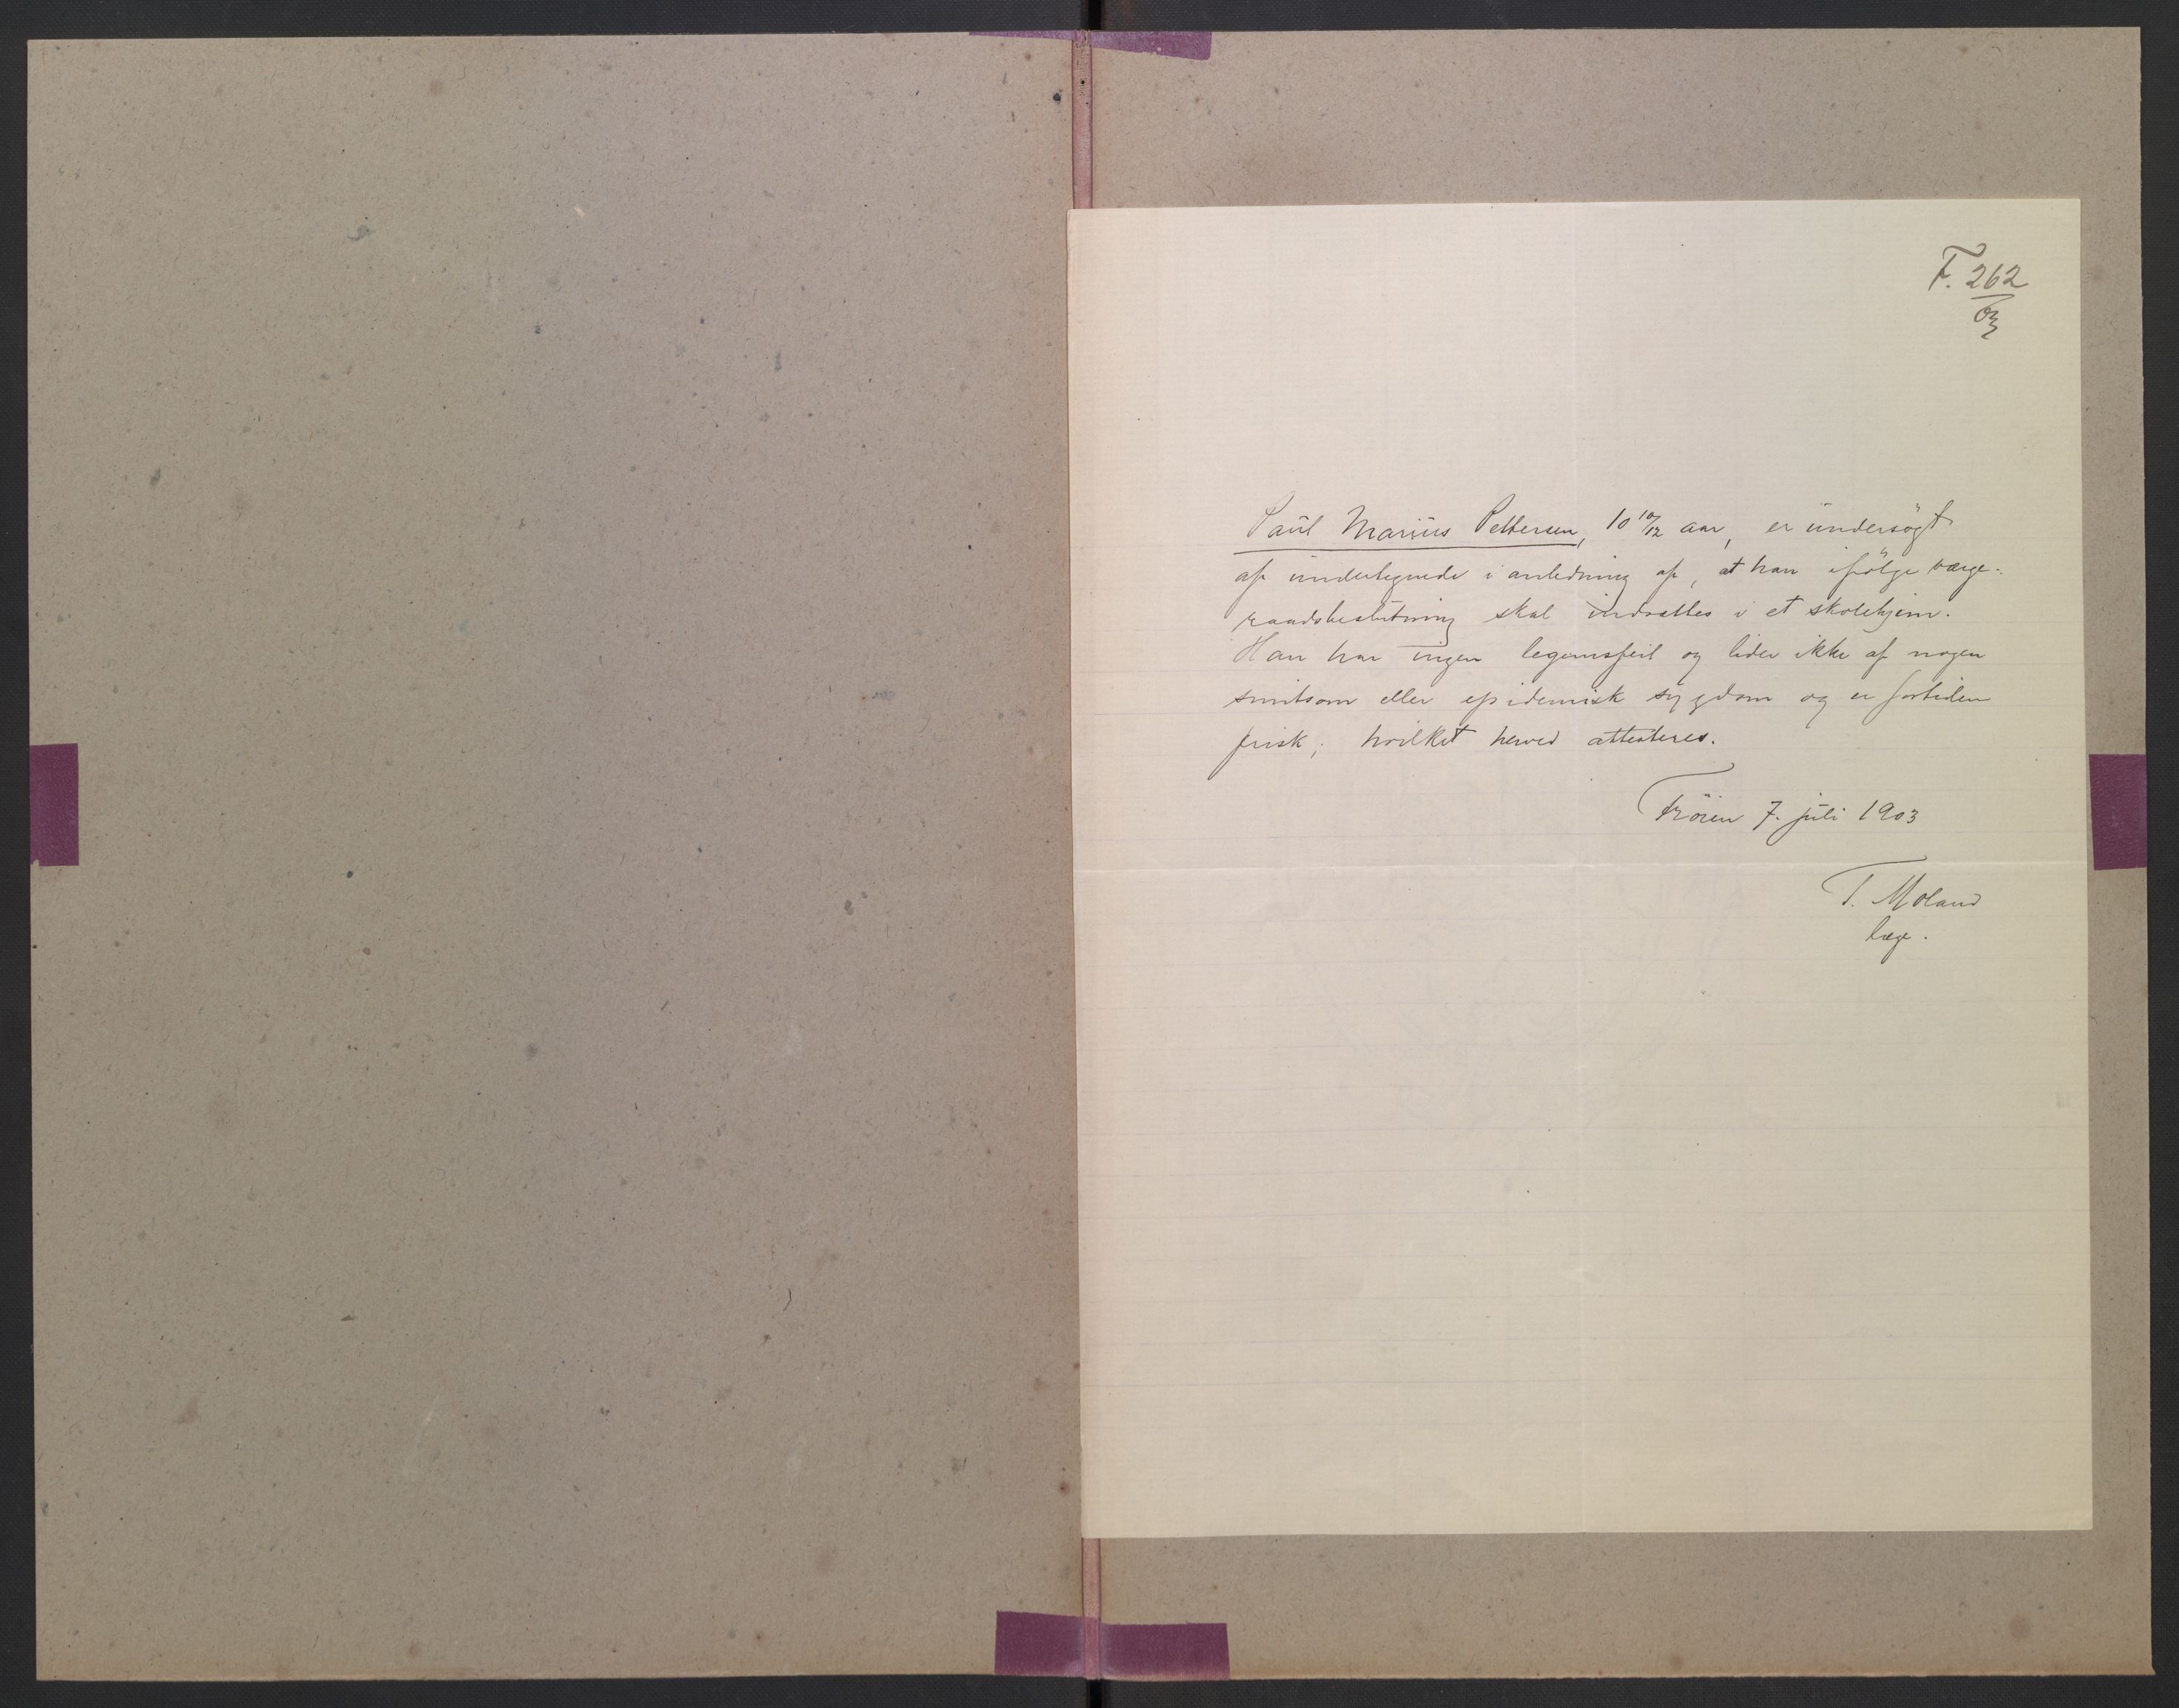 F. 262
03
Paul Marius Pettersen, 10 10/12 aar, er undersögt
af undertegnede i anledning af, at han ifölge værge-
raadsbeslutning skal indsættes i et skolehjem.
Han har ingen legemsfeil og lider ikke af nogen
smitsom eller epidemisk sygdom og er fortiden
frisk; hvilket herved attesteres.
Fröien 7. juli 1903
T. Moland
læge.